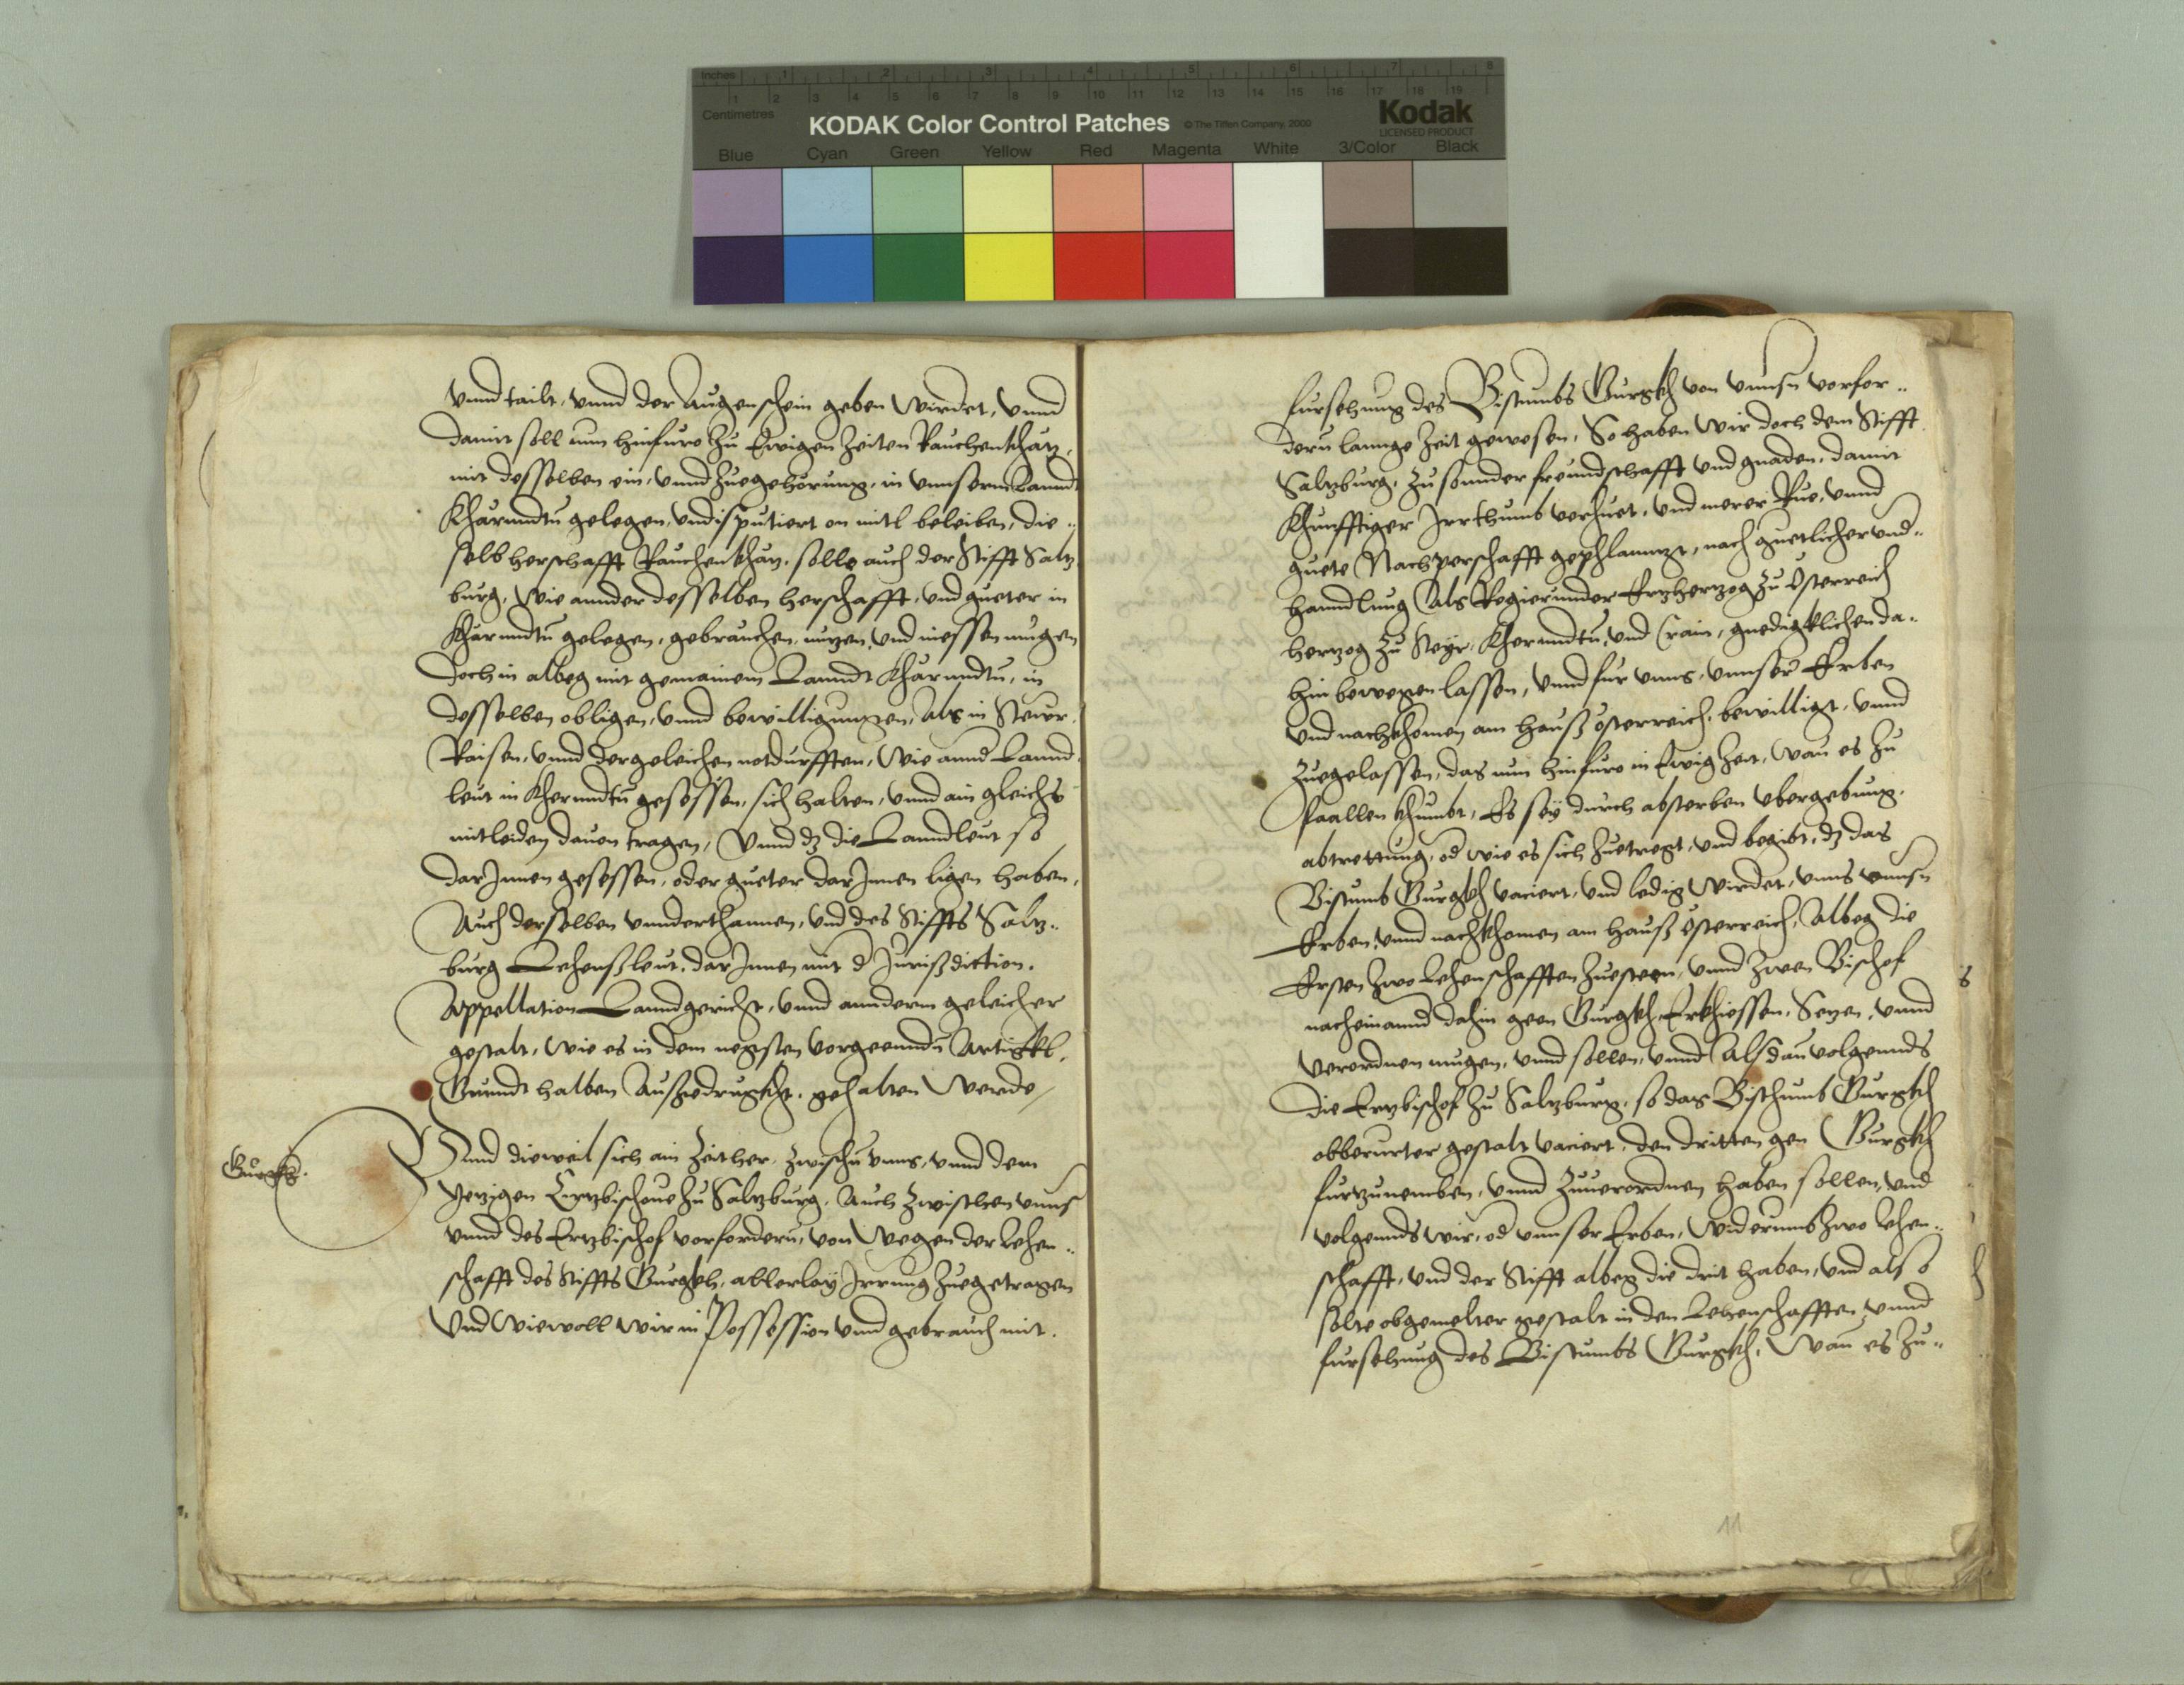 Inches 1 2 3 4 5 6 7 8
Centimetres 1 2 3 4 5 6 7 8 9 10 11 12 13 14 15 16 17 18 19
KODAK Color Control Patches © The Tiffen Company, 2000 Kodak
LICENSED PRODUCT
Blue Cyan Green Yellow Red Magenta White 3/Color Black
vnnd tailt, vnnd der Augenschein geben wirdet, vnnd
damit soll nun hinfuro zu Ewigen Zeiten Rauchenkhatz,
mit desselben ein, vnnd zuegehörung, in vnnserm Lanndt
Khärnndtn gelegen, vndisputiert on mitl beleiben, die..
selb herschafft Rauchenkhatz, solle auch der Stifft Saltz
burg, Wie annder desselben herschafft, vnd gueter in
Khärnndtn gelegen, gebrauchen, nutzen, vnd niessen mugen
doch in albeg mit gemainem Lanndt Khärnndtn, in
desselben obligen, vnnd bewilligungen, Als in Steur,
Raisen, vnnd dergeleichen notdurfften, Wie annd Lannd
leut in Khernndtn gesessen, sich halten, vnnd ain gleichs
mitleiden dauon tragen, Vnnd dz die Lanndleut so
darJnnen gesessen, oder gueter darJnnen ligen haben,
Auch derselben vnnderthannen, vnd des Stiffts Saltz..
burg Lehenßleut, darJnnen mit d Jurißdiction,
Appellation Lanndgericht, vnnd annderm geleicher
gestalt, wie es in dem negsten vorgeenndn Artickl,
Grundt halben Außgedruckht, gehalten Werde
Gurckh.
Vnnd dieweil sich ain Zeither, zwischn vnns, vnnd dem
yetzigen Ertzbischoue zu Saltzburg, Auch zwischen vnns
vnnd des Ertzbischof vorfordern, von Wegen der lehen..
schafft des Stiffts Gurgkh, allerley Jrrung zuegetragen
Vnd Wiewoll wir in Possession vnnd gebrauch mit.
fursehung des Bistumbs Gurgkh von vnnsn vorfor..
dern lannge Zeit gewesen, So haben Wir doch dem Stifft
Saltzburg, zu sonnder freundschafft vnd gnaden, damit
Khunfftiger Jrrthumb verhuet, vnd merer Rue, vnnd
guete Nachperschafft gephlanntzt, nach guetlicher vnd..
hanndlung Als Regierunder Ertzhertzog zu Österreich
hertzog zu Steyr, Khernndtn, vnd Crain, gnedigklichen da..
hin bewegen lassen, vnnd fur vnns, vnnser Erben
vnd nachkhomen am hauß österreich, bewilligt, vnnd
zuegelassen, das nun hinfuro in Ewig Zeit, wan es zu
faallen khumbt, Es sey durch absterben vbergebung,
abtrettung, od wie es sich zuetregt, vnd begibt, dz das
Bistumb Gurgkh vaciert, vnd ledig wirdet, vnns vnnsn
Erben, vnnd nachkhomen am hauß österreich, Albeg die
Ersten zwo Lehenschafften zuesteen, vnnd zwen Bischof
nacheinannd dahin geen Gurgkh, Erkhiessen, Setzen, vnnd
verordnen mugen, vnnd sollen, vnnd Alsdan volgennds
die Ertzbischof zu Saltzburg, so das Bisthumb Gurgkh
obberurter gestalt vaciert, den dritten gen Gurgkh
furzunemben, vnnd Zuuerordnen haben sollen, vnd
volgennds wir, od vnnser Erben, Widerumb zwo lehen..
schafft, vnd der Stifft albeg die drit haben, vnd also
solte obgemelter gestalt in den Lehenschafften, vnnd
fursehung des Bistumbs Gurgkh, Wan es zu..
11